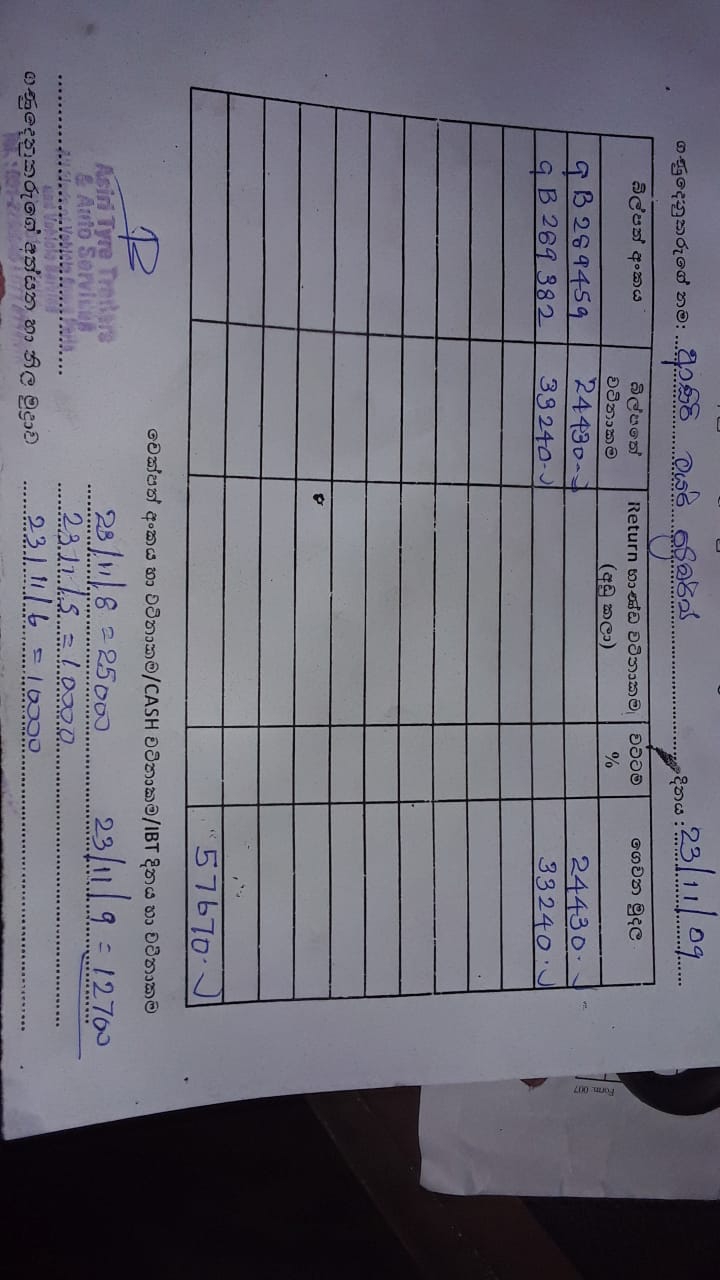 ගණුදෙනුකරුගේ නම: ආසිරි ටයර් ට්‍රේඩර්ස් දිනය: 23/11/09
බිල්පත් අංකය බිල්පතේ වටිනාකම Return භාණ්ඩ වටිනාකම (අඩු කලා) වට්ටම % ගෙවන මුදල
9B269459 24430.- 24430.-
9B269382 33240.- 33240.-
57670.-
චෙක්පත් අංකය හා වටිනාකම/CASH වටිනාකම/IBT දිනය හා වටිනාකම
23/11/8 = 25000 23/11/9 = 12700
23/11/5 = 10000
23/11/6 = 10000
Asiri Tyre Traders
& Auto Servicing
ගණුදෙනුකරුගේ අත්සන හා නිල මුද්‍රාව
Form: 007